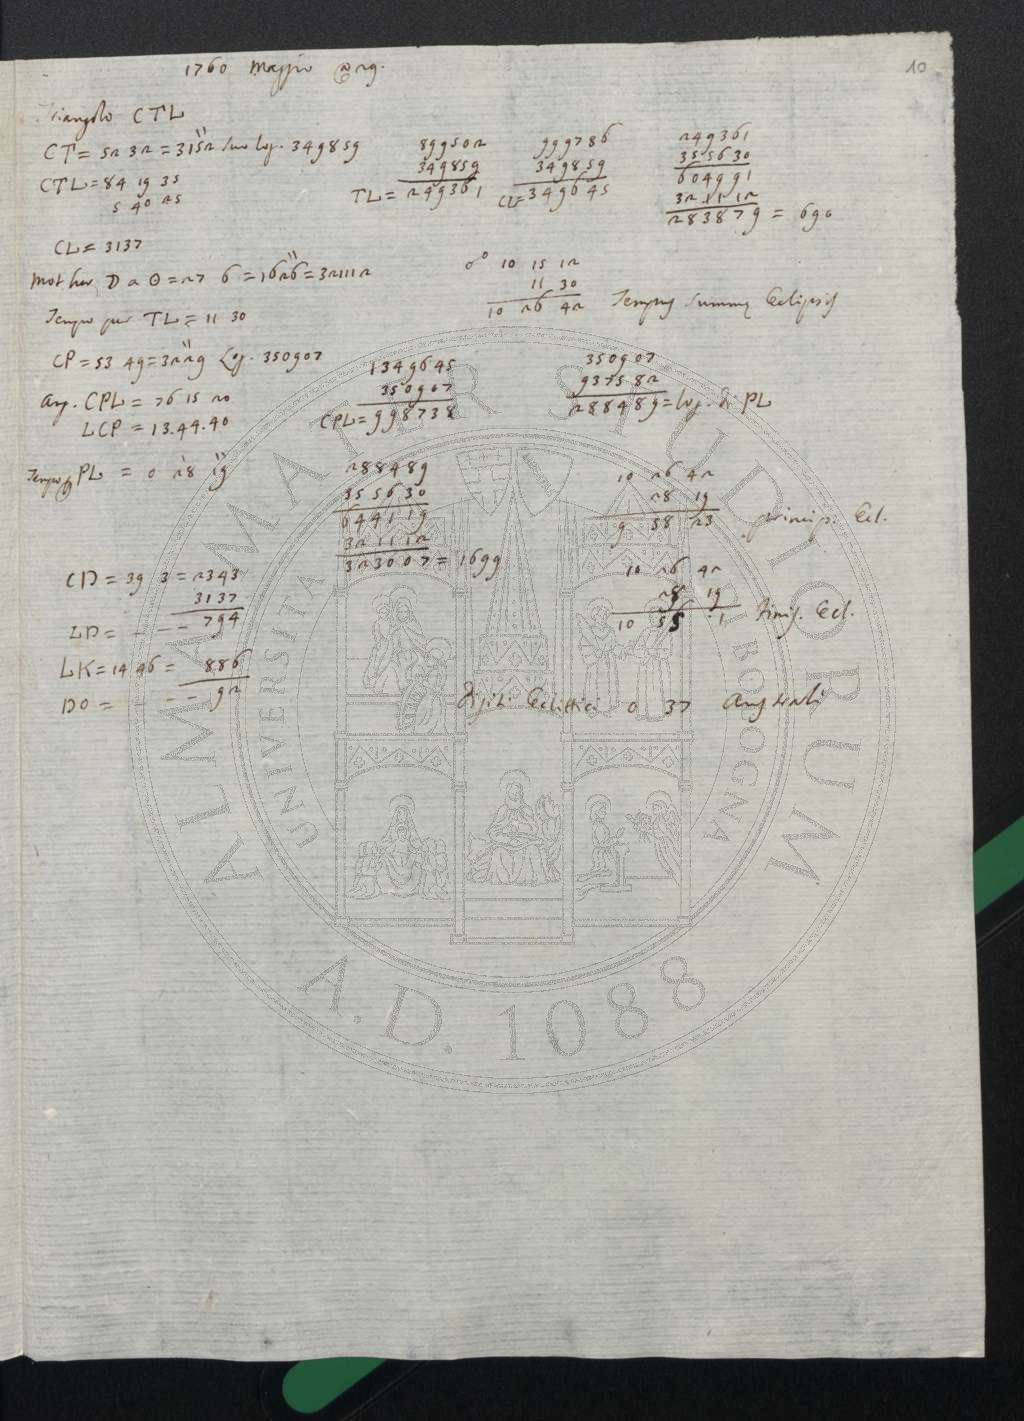 1760 Maggio @ 29.
10
Triangolo CTL
CT = 52 32 = 3152'' suo log. 349859
CTL = 84 19 35
5 40 25
899502
349859
TL = 249361
999786
349859
CL = 349645
249361
355630
604991
321112
283879 = 690
CL = 3137
Mot hor ☽ a ☉ = 27 6 = 1626'' = 321112
Tempo per TL = 11 30
☍ 10 15 12
11 30
10 26 42 Tempus summæ Eclipsis
CP = 53 49 = 3229'' Log. 350907
Ang. CPL = 76 15 20
LCP = 13.44.40
1349645
350907
CPL = 998738
350907
937582
288489 = log. di PL
Tempo p PL = 0 28 19
288489
355630
644119
321112
323007 = 1699
10 26 42
28 19
9 58 23 princip. Ecl.
10 26 42
28 19
10 55 1 finis. Ecl.
CD = 39 3 = 2343
3137
LD = - - - 794
LK = 14 46 = 886
DO = - - - 92
Digiti Eclittici 0 37 Australi
ALMA MATER STUDIORUM
UNIVERSITÀ DI BOLOGNA
A.D. 1088